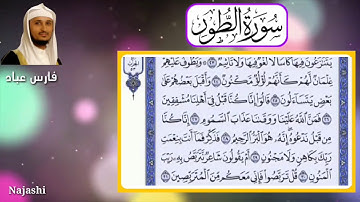 سُورَةُ الطُّورِ
فارس عباد
يَتَنَازَعُونَ فِيهَا كَأْسًا لَّا لَغْوٌ فِيهَا وَلَا تَأْثِيمٌ ۝ وَيَطُوفُ عَلَيْهِمْ
غِلْمَانٌ لَّهُمْ كَأَنَّهُمْ لُؤْلُؤٌ مَّكْنُونٌ ۝ وَأَقْبَلَ بَعْضُهُمْ عَلَىٰ
بَعْضٍ يَتَسَاءَلُونَ ۝ قَالُوا إِنَّا كُنَّا قَبْلُ فِي أَهْلِنَا مُشْفِقِينَ
۝ فَمَنَّ اللَّهُ عَلَيْنَا وَوَقَانَا عَذَابَ السَّمُومِ ۝ إِنَّا كُنَّا
مِن قَبْلُ نَدْعُوهُ ۖ إِنَّهُ هُوَ الْبَرُّ الرَّحِيمُ ۝ فَذَكِّرْ فَمَا أَنتَ بِنِعْمَتِ
رَبِّكَ بِكَاهِنٍ وَلَا مَجْنُونٍ ۝ أَمْ يَقُولُونَ شَاعِرٌ نَّتَرَبَّصُ بِهِ رَيْبَ
الْمَنُونِ ۝ قُلْ تَرَبَّصُوا فَإِنِّي مَعَكُم مِّنَ الْمُتَرَبِّصِينَ
Najashi